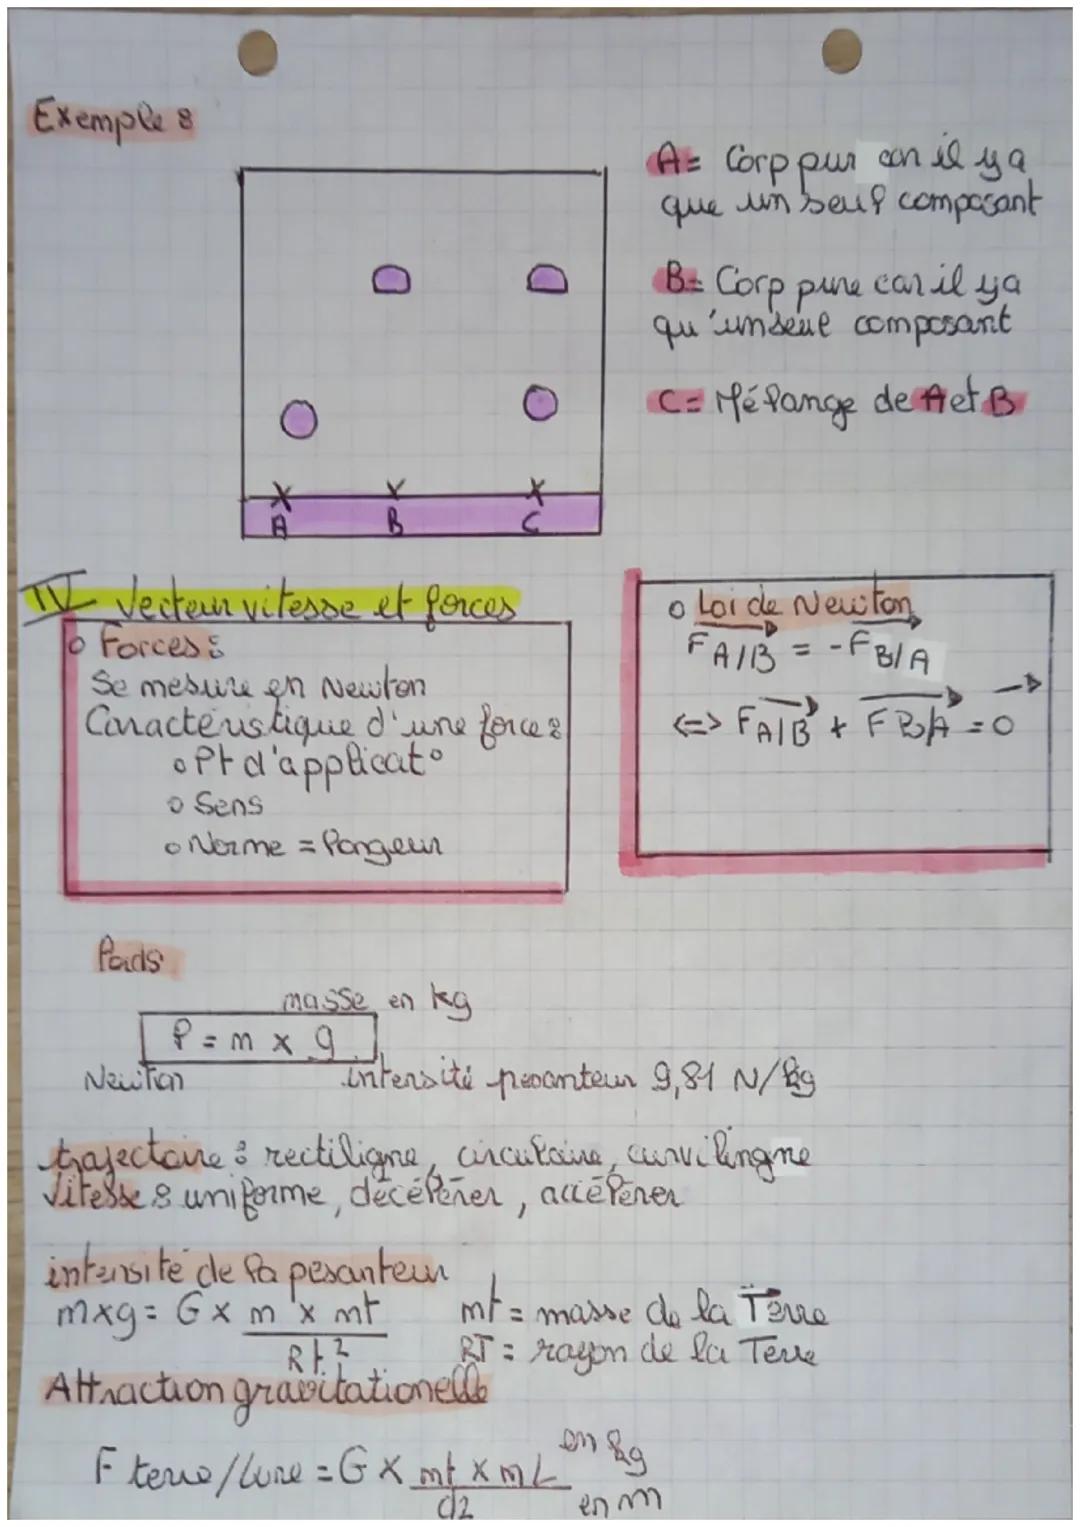 Exemple :
A= Corp pur car il y a
que un seul composant
B= Corp pure car il ya
qu'un seul composant
C= Mélange de A et B
A B C
IV Vecteur vitesse et forces
o Forces :
Se mesure en Newton
Caractéristique d'une force :
o Pt d'applicat°
o Sens
o Norme = longeur
o Loi de Newton
F A/B = -F B/A
<=> F A/B + F B/A = 0
Poids
masse en kg
P = m x g
Newton
intensité pesanteur 9,81 N/kg
trajectoire : rectiligne, circulaire, curvilingne
Vitesse : uniforme, décélérer, accélérer
intensité de la pesanteur
mxg = G x m x mt
Rt²
mt = masse de la Terre
RT = rayon de la Terre
Attraction gravitationelle
F terre/lune = G x mt x mL en kg
d2 en m